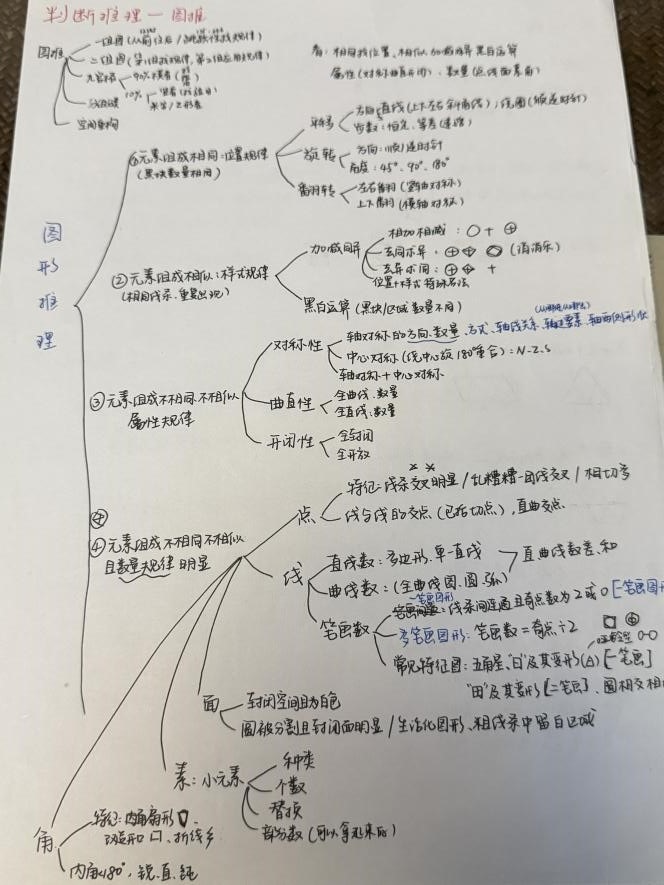 判断推理一图推
图推
一组图
二组图
九宫格
90%横着
10%
米字/Z形看
空间重构
看：相同找位置、相似加减异黑白运算
属性(对称曲直开闭)、数量(点线面素角)
图形推理
①元素组成相同：位置规律
(黑块数量相同)
平移
方向：直线(上下左右斜角线)；绕圈(顺逆时针)
步数：恒定、等差(递增)
旋转
方向：顺/逆时针
角度：45°、90°、180°
翻转
左右翻转(竖轴对称)
上下翻转(横轴对称)
②元素组成相似：样式规律
(相同线条重复出现)
加减同异
相加相减：
去同求异：
(消消乐)
去异求同：
位置+样式
黑白运算(黑块/区域数量不同)
③元素组成不相同、不相似
属性规律
对称性
轴对称的方向、数量、方式、轴线关系、
中心对称(绕中心旋180°重合)：N、Z、S
轴对称+中心对称
曲直性
全曲线、数量
全直线、数量
开闭性
全封闭
全开放
④
④元素组成不相同不相似
且数量规律明显
点
特征：线条交叉明显/乱糟糟一团线交叉/相切多
线与线的交点(包括切点)，直曲交点
线
直线数：多边形、单一直线
曲线数：(全曲线图、圆、弧)
直曲线数差、和
笔画数
一笔画图形
线条间连通且奇点数为2或0[一笔画图形
多笔画图形：笔画数=奇点÷2
常见特征图：五角星、"日"及其变形(A)[一笔画]
"田"及其变形[二笔画]、圆相交相
面
封闭空间且为白色
图被分割且封闭面明显/生活化图形、粗线条中留白区域
素：小元素
种类
个数
替换
部分数(可以拿起来的)
角
特征：内角扇形、
改造和口、折线多
内角<180°，锐、直、钝